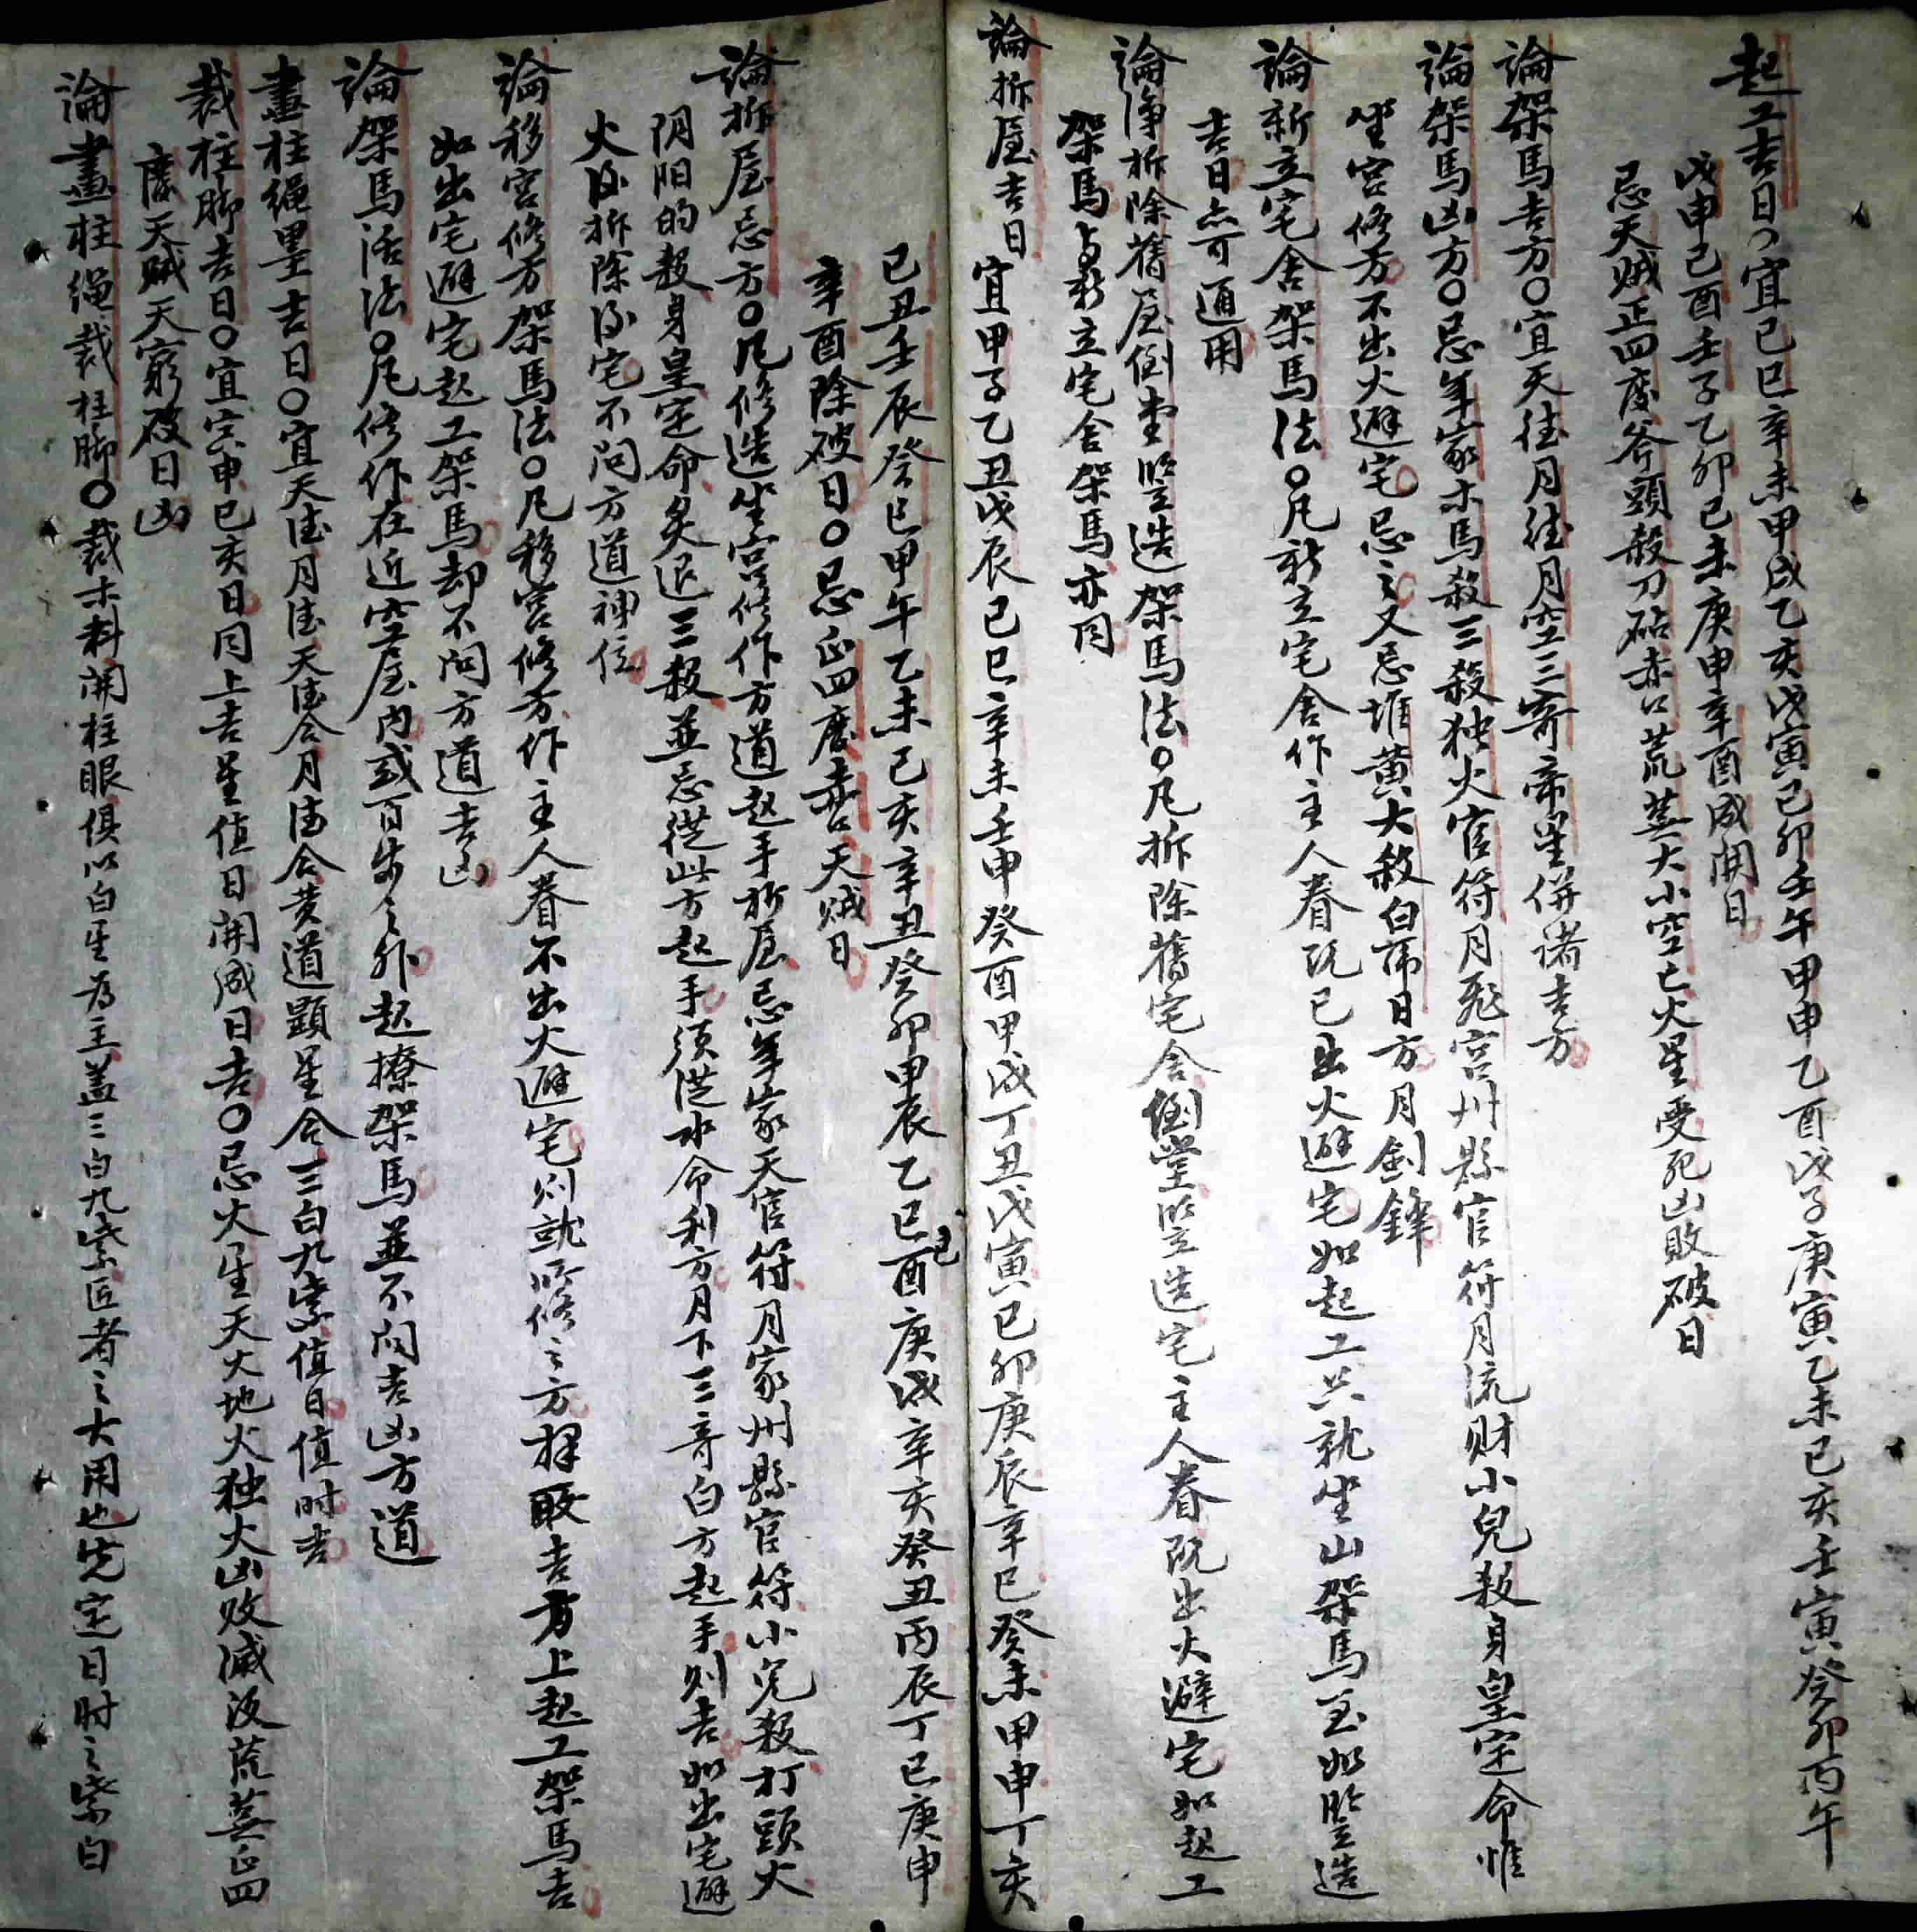 起工吉日〇宜己巳辛未甲戌乙亥戊寅己卯壬午甲申乙酉戊子庚寅乙未己亥壬寅癸卯丙午
戊申己酉壬子乙卯己未庚申辛酉成開日
忌天賊正四废斧頭殺刀砧赤口荒蕪大小空亡火星受死凶敗破日
論架馬吉方〇宜天德月德月空三奇帝星併諸吉方
論架馬凶方〇忌年家木馬殺三殺独火官符月飛宮州縣官符月流财小兒殺身皇定命惟
坐宮修方不出火避宅忌之又忌堆黄大殺白帍日方月劍鋒
論新立宅舍架馬法〇凡新立宅舍作主人眷既已出火避宅如起工只就坐山架馬至如竪造
吉日亦可通用
論净拆除舊屋倒堂竪造架馬法〇凡拆除舊宅舍倒堂竪造宅主人眷既出火避宅如起工
架馬与新立宅舍架馬亦同
論拆屋吉日宜甲子乙丑戊辰己巳辛未壬申癸酉甲戌丁丑戊寅己卯庚辰辛巳癸未甲申丁亥
己丑壬辰癸巳甲午乙未己亥辛丑癸卯甲辰乙巳己酉庚戌辛亥癸丑丙辰丁巳庚申
辛酉除破日〇忌正四废赤口天贼日
論拆屋忌方〇凡修造坐宮修作方道起手拆屋忌年家天官符月家州縣官符小児殺打頭火
阴阳的殺身皇定命炙退三殺並忌從此方起手須從水命利方月下三奇白方起手则吉如出宅避
火後拆除後宅不问方道神位
論移宮修方架馬法〇凡移宮修方作主人眷不出火避宅则就所修之方择取吉方上起工架馬吉
如出宅避宅起工架馬却不问方道吉凶
論架馬活法〇凡修作在近空屋内或百步之外起撩架馬並不问吉凶方道
畫柱绳墨吉日〇宜天德月德天德合月德合黄道顯星合三白九紫值日值时吉
裁柱脚吉日〇宜寅申巳亥日同上吉星值日開成日吉〇忌火星天火地火独火凶败滅没荒蕪正四
废天贼天窮破日凶
論畫柱绳裁柱脚〇裁木料開柱眼俱以白星为主盖三白九紫匠者之大用也先定日时之紫白